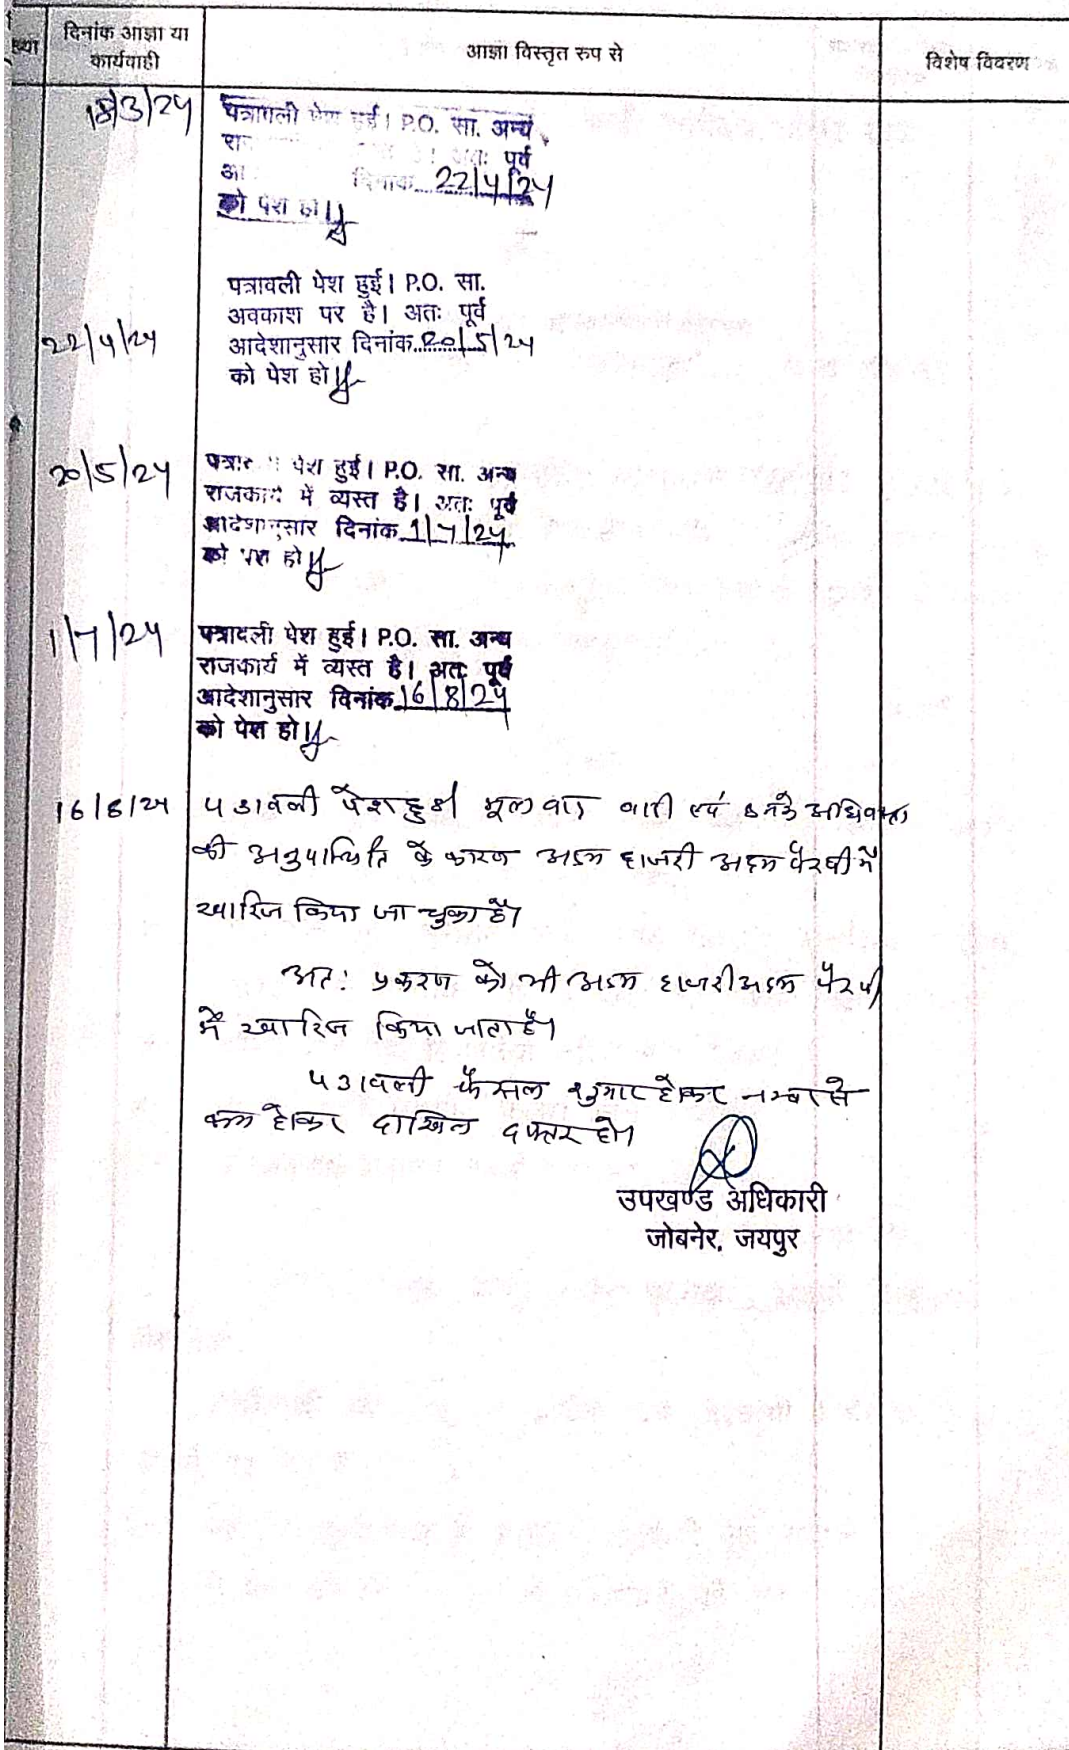 ख्या
दिनांक आज्ञा या
कार्यवाही
आज्ञा विस्तृत रुप से
विशेष विवरण
18/3/24
पत्रावली पेश हुई। P.O. सा. अन्य
रा अतः पूर्व
आ दिनांक 22/4/24
को पेश हो।
पत्रावली पेश हुई। P.O. सा.
अवकाश पर है। अतः पूर्व
22/4/24
आदेशानुसार दिनांक 20/5/24
को पेश हो।
20/5/24
पत्रावली पेश हुई। P.O. सा. अन्य
राजकार्य में व्यस्त है। अतः पूर्व
आदेशानुसार दिनांक 1/7/24
को पेश हो।
1/7/24
पत्रावली पेश हुई। P.O. सा. अन्य
राजकार्य में व्यस्त है। अतः पूर्व
आदेशानुसार दिनांक 16/8/24
को पेश हो।
16/8/24
पत्रावली पेश हुई मूल वाद वादी एवं उनके अधिवक्ता
की अनुपस्थिति के कारण अदम हाजरी अदम पैरवी में
खारिज किया जा चुका है।
अतः प्रकरण को भी अदम हाजरी अदम पैरवी
में खारिज किया जाता है।
पत्रावली फैसल शुमार होकर नम्बर से
कम होकर दाखिल दफ्तर हो।
उपखण्ड अधिकारी
जोबनेर, जयपुर